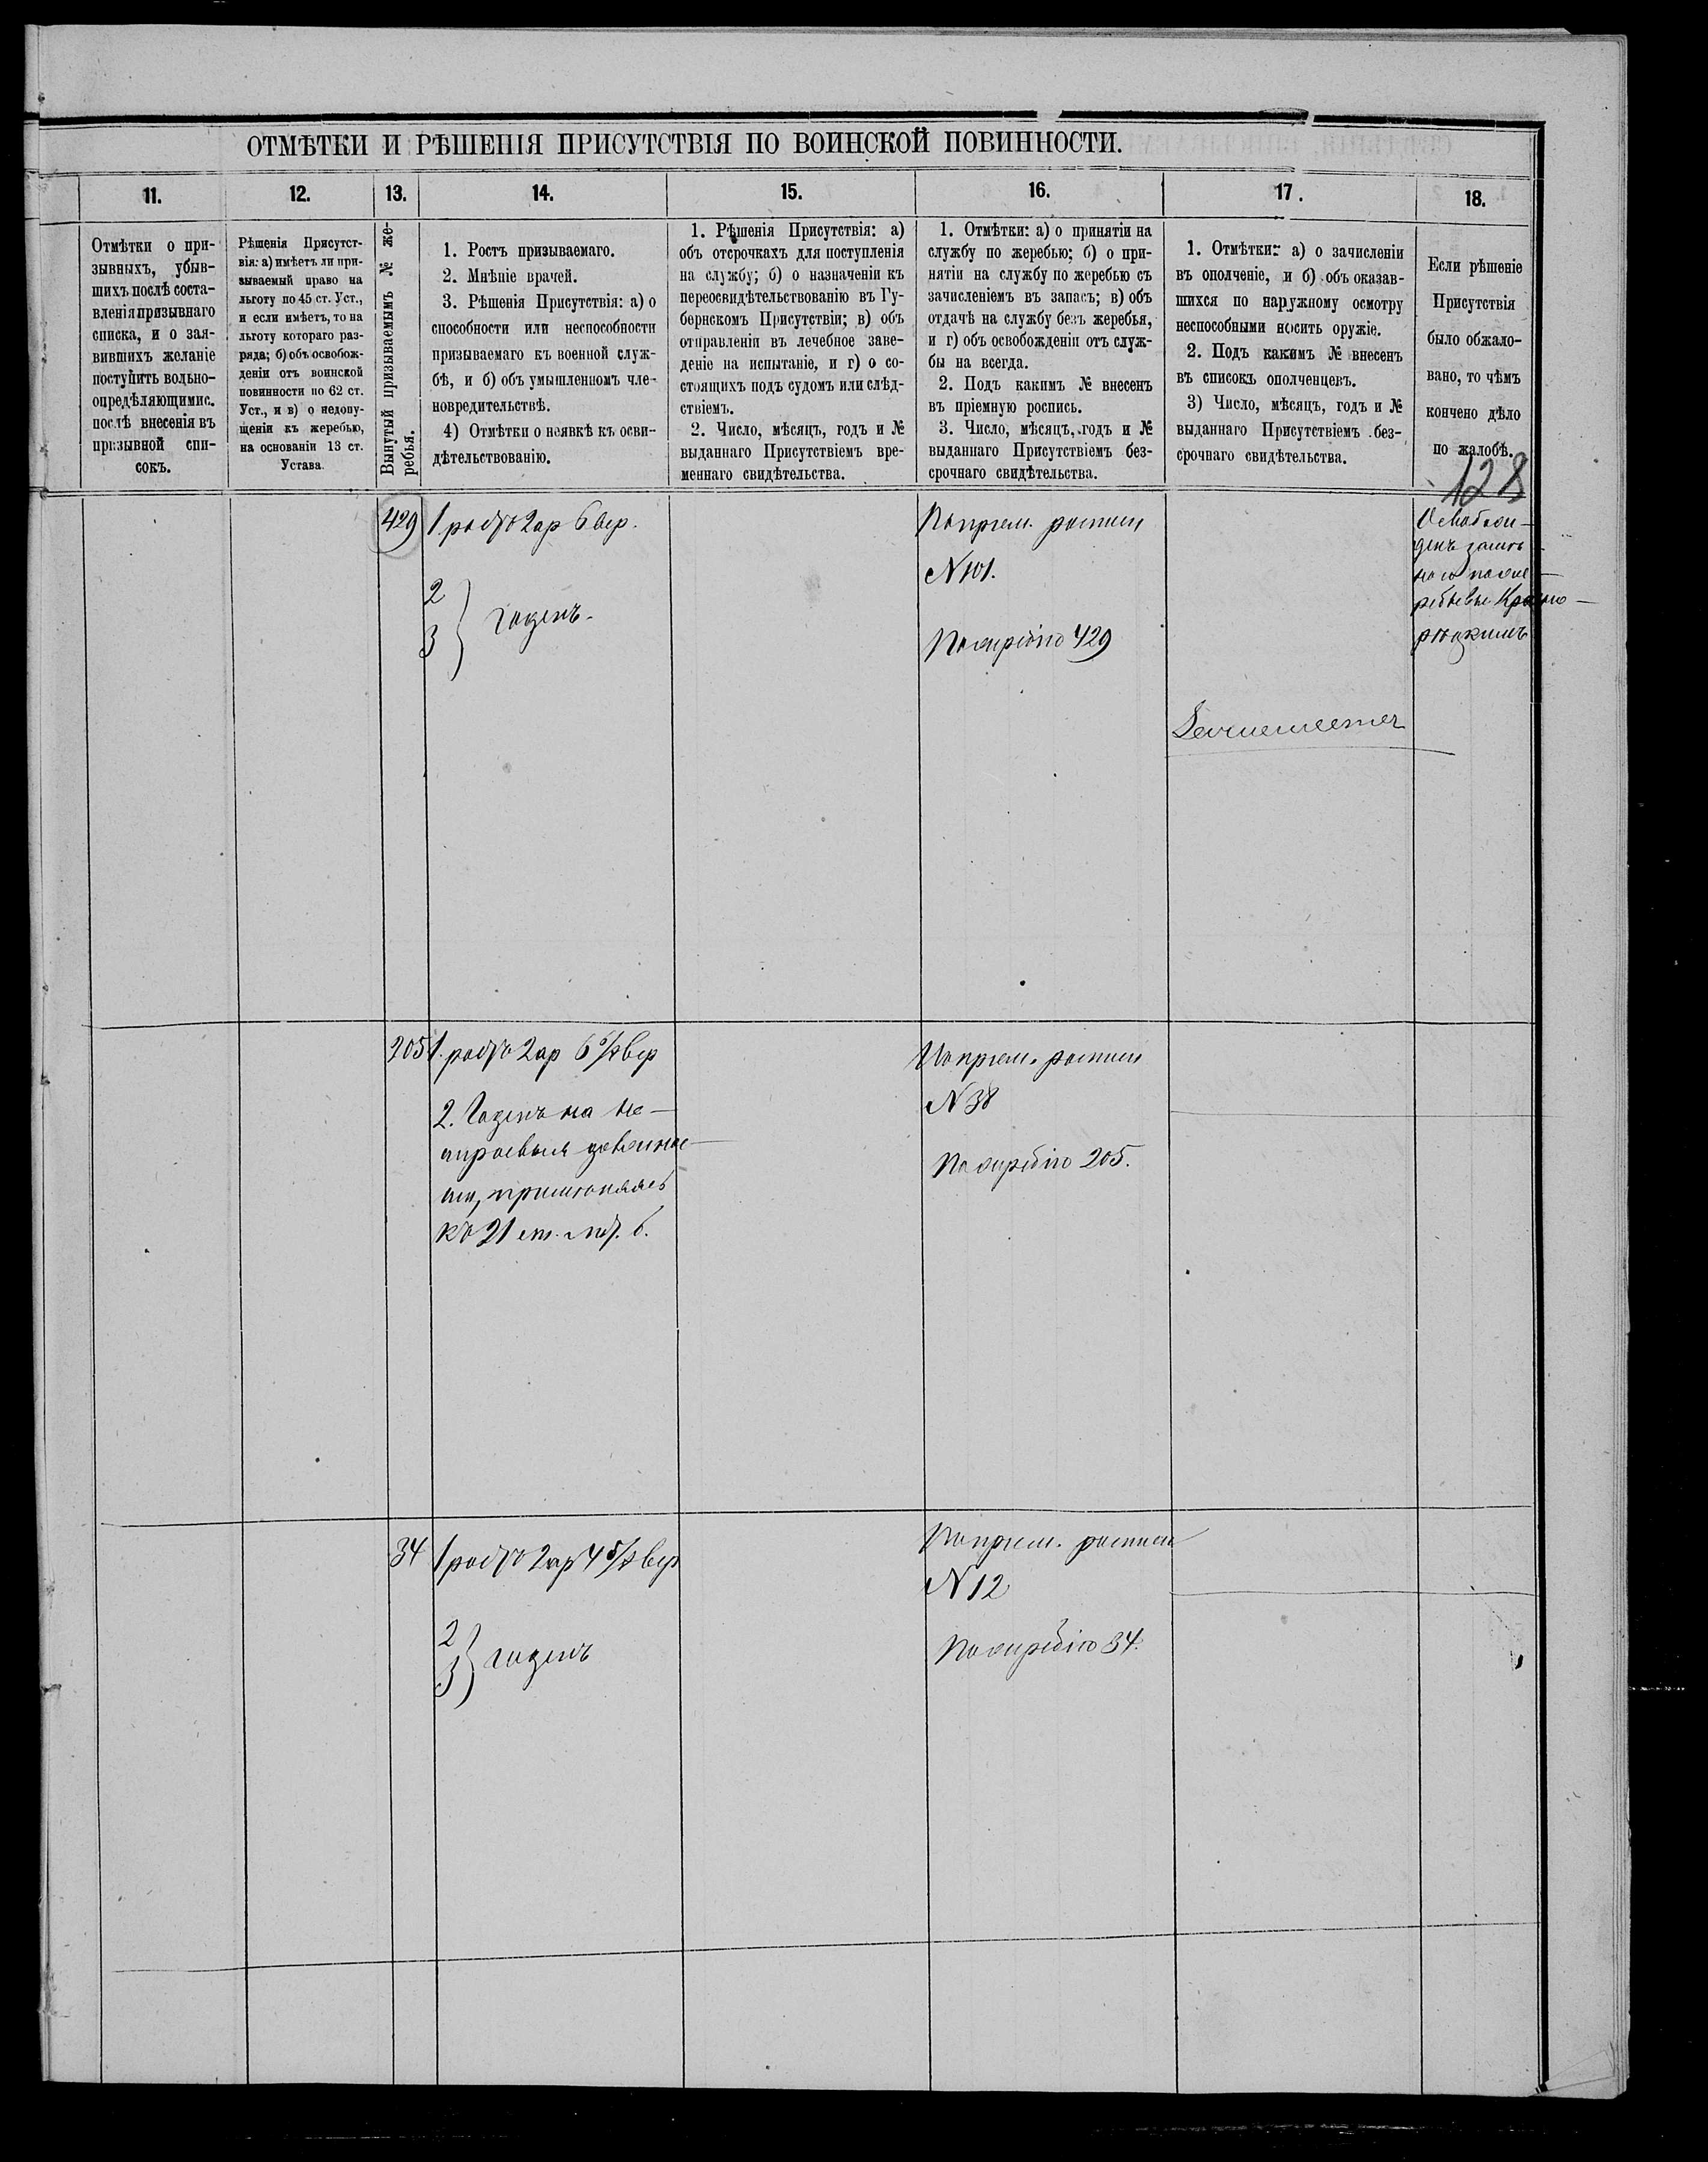 ОТМѢТКИ И РѢШЕНІЯ ПРИСУТСТВІЯ ПО ВОИНСКОЙ ПОВИННОСТИ.
11.
12.
13.
14.
15.
16.
17.
18.
Отмѣтки о при-
зывныхъ, убыв-
шихъ послѣ соста-
вленія призывнаго
списка, и о зая-
вившихъ желаніе
поступить вольно-
опредѣляющимис.
послѣ внесенія въ
призывной спи-
сокъ.
Рѣшенія Присутст-
вія: а) имѣетъ ли при-
зываемый право на
льготу по 45 ст. Уст.,
и если имѣетъ, то на
льготу котораго раз-
ряда; б) объ освобож-
деніи отъ воинской
повинности по 62 ст.
Уст., и в) о недопу-
щеніи къ жеребью,
на основаніи 13 ст.
Устава.
Вынутый призываемымъ № же-
ребья.
1. Ростъ призываемаго.
2. Мнѣніе врачей.
3. Рѣшенія Присутствія: а) о
способности или неспособности
призываемаго къ военной служ-
бѣ, и б) объ умышленномъ чле-
новредительствѣ.
4) Отмѣтки о неявкѣ къ осви-
дѣтельствованію.
1. Рѣшенія Присутствія: а)
объ отсрочкахъ для поступленія
на службу; б) о назначеніи къ
переосвидѣтельствованію въ Гу-
бернскомъ Присутствіи; в) объ
отправленіи въ лечебное заве-
деніе на испытаніе, и г) о со-
стоящихъ подъ судомъ или слѣд-
ствіемъ.
2. Число, мѣсяцъ, годъ и №
выданнаго Присутствіемъ вре-
меннаго свидѣтельства.
1. Отмѣтки: а) о принятіи на
службу по жеребью; б) о при-
нятіи на службу по жеребью съ
зачисленіемъ въ запасъ; в) объ
отдачѣ на службу безъ жеребья,
и г) объ освобожденіи отъ служ-
бы на всегда.
2. Подъ какимъ № внесенъ
въ пріемную роспись.
3. Число, мѣсяцъ, годъ и №
выданнаго Присутствіемъ без-
срочнаго свидѣтельства.
1. Отмѣтки: а) о зачисленіи
въ ополченіе, и б) объ оказав-
шихся по наружному осмотру
неспособными носить оружіе.
2. Подъ какимъ № внесенъ
въ списокъ ополченцевъ.
3) Число, мѣсяцъ, годъ и №
выданнаго Присутствіемъ без-
срочнаго свидѣтельства.
Если рѣшеніе
Присутствія
было обжало-
вано, то чѣмъ
кончено дѣло
по жалобѣ.
128
429
1. ростъ 2 ар 6 вер.
2
3
годенъ.
По пріем. росписи
№ 101.
По жеребію 429
Освобож-
денъ
205
1. ростъ 2 ар 6 вер
2. Годенъ на не-
строевыя
къ 21 ст. б.
По пріем. росписи
№ 38
По жеребію 205.
34
1 ростъ 2 ар 4 5/8 вер
2
3
годенъ
По пріем. росписи
№ 12
По жеребію 34.